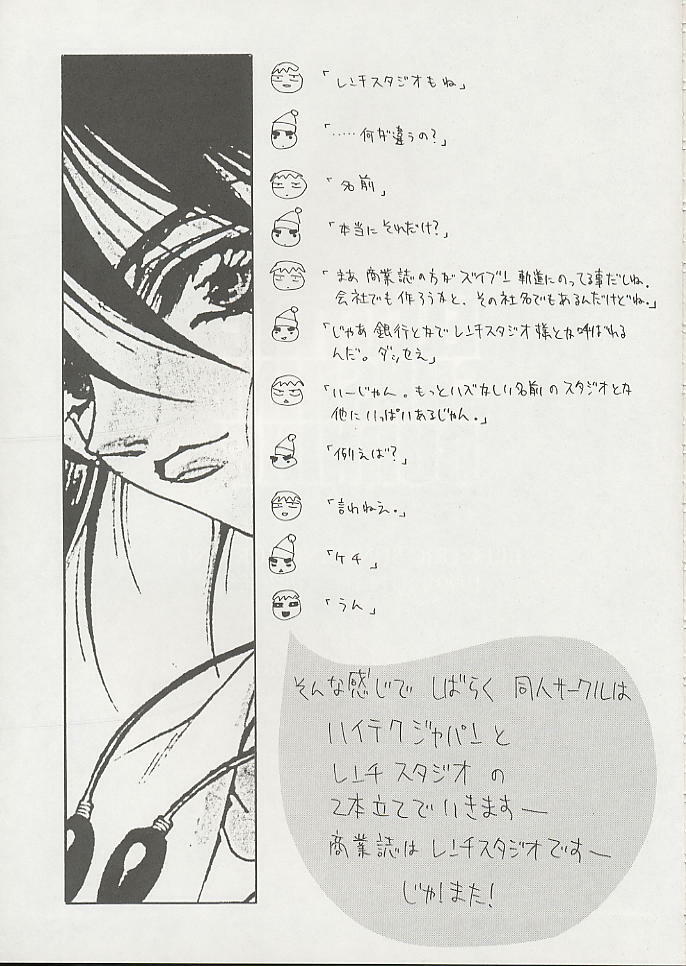 「レンチスタジオもね」
「……何が違うの？」
「名前」
「本当にそれだけ？」
「まあ 商業誌の方が ズイブン 軌道にのってる事だしね.
会社でも作ろうかと、その社名でもあるんだけどね。」
「じゃあ 銀行とかで レンチスタジオ様とか呼ばれる
んだ。ダッセえ」
「いーじゃん。もっとハズかしい名前の スタジオとか
他に いっぱいあるじゃん。」
「例えば？」
「言わねえ。」
「ケチ」
「うん」
そんな感じで しばらく 同人サークルは
ハイテクジャパンと
レンチスタジオ の
2本立てで いきますー
商業誌は レンチスタジオですー
じゃ！また！